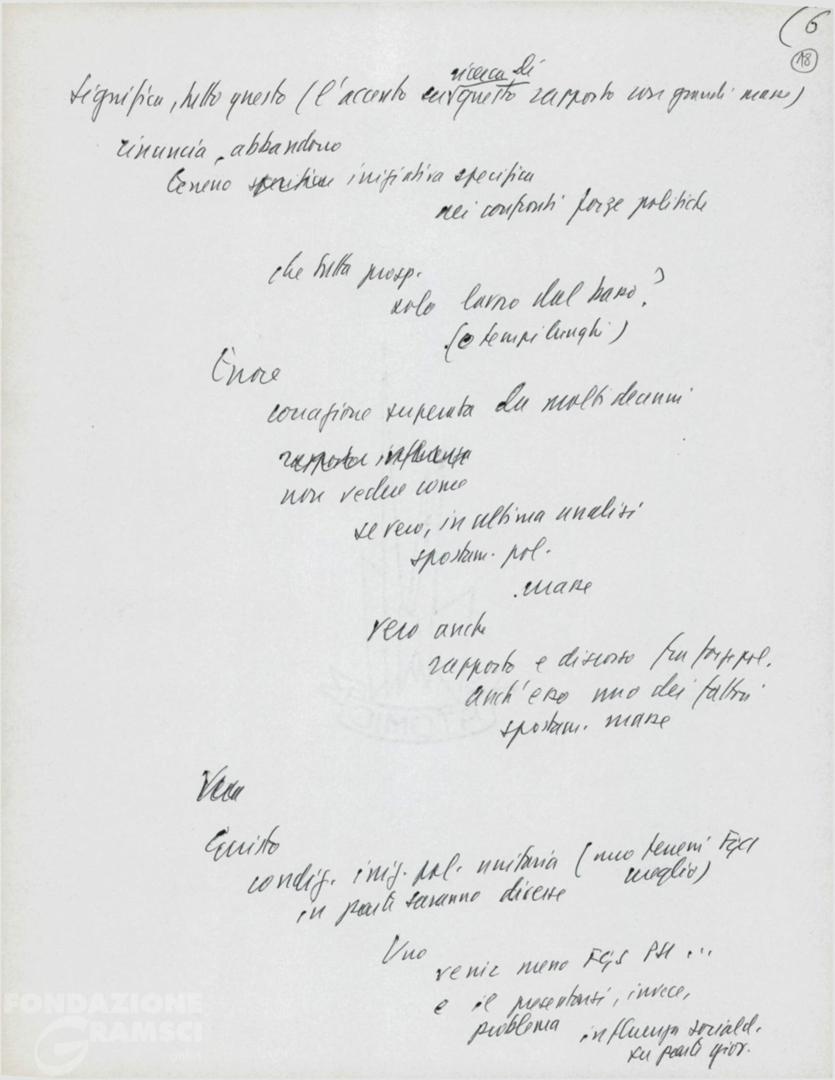 (6
18
ricerca di
significa, tutto questo (l'accento su questo rapporto con grandi masse)
rinuncia, abbandono
terreno specifica iniziativa specifica
nei confronti forze politiche
che tutta prosp.
solo lavoro dal basso?
(e tempi lunghi)
Errore
concezione superata da molti decenni
rapporto influenza
non vedere come
se vero, in ultima analisi
spostam. pol.
masse
vero anche
rapporto e discorso fra forze pol.
anch'esso uno dei fattori
spostam. masse
Vero
Giusto
condiz. iniz. pol. unitaria (uno terreni FGCI
meglio)
in parte saranno diverse
Uno
venir meno FGS PSI ...
e il presentarsi, invece,
problema influenza sociald.
su parte giov.
FONDAZIONE
GRAMSCI